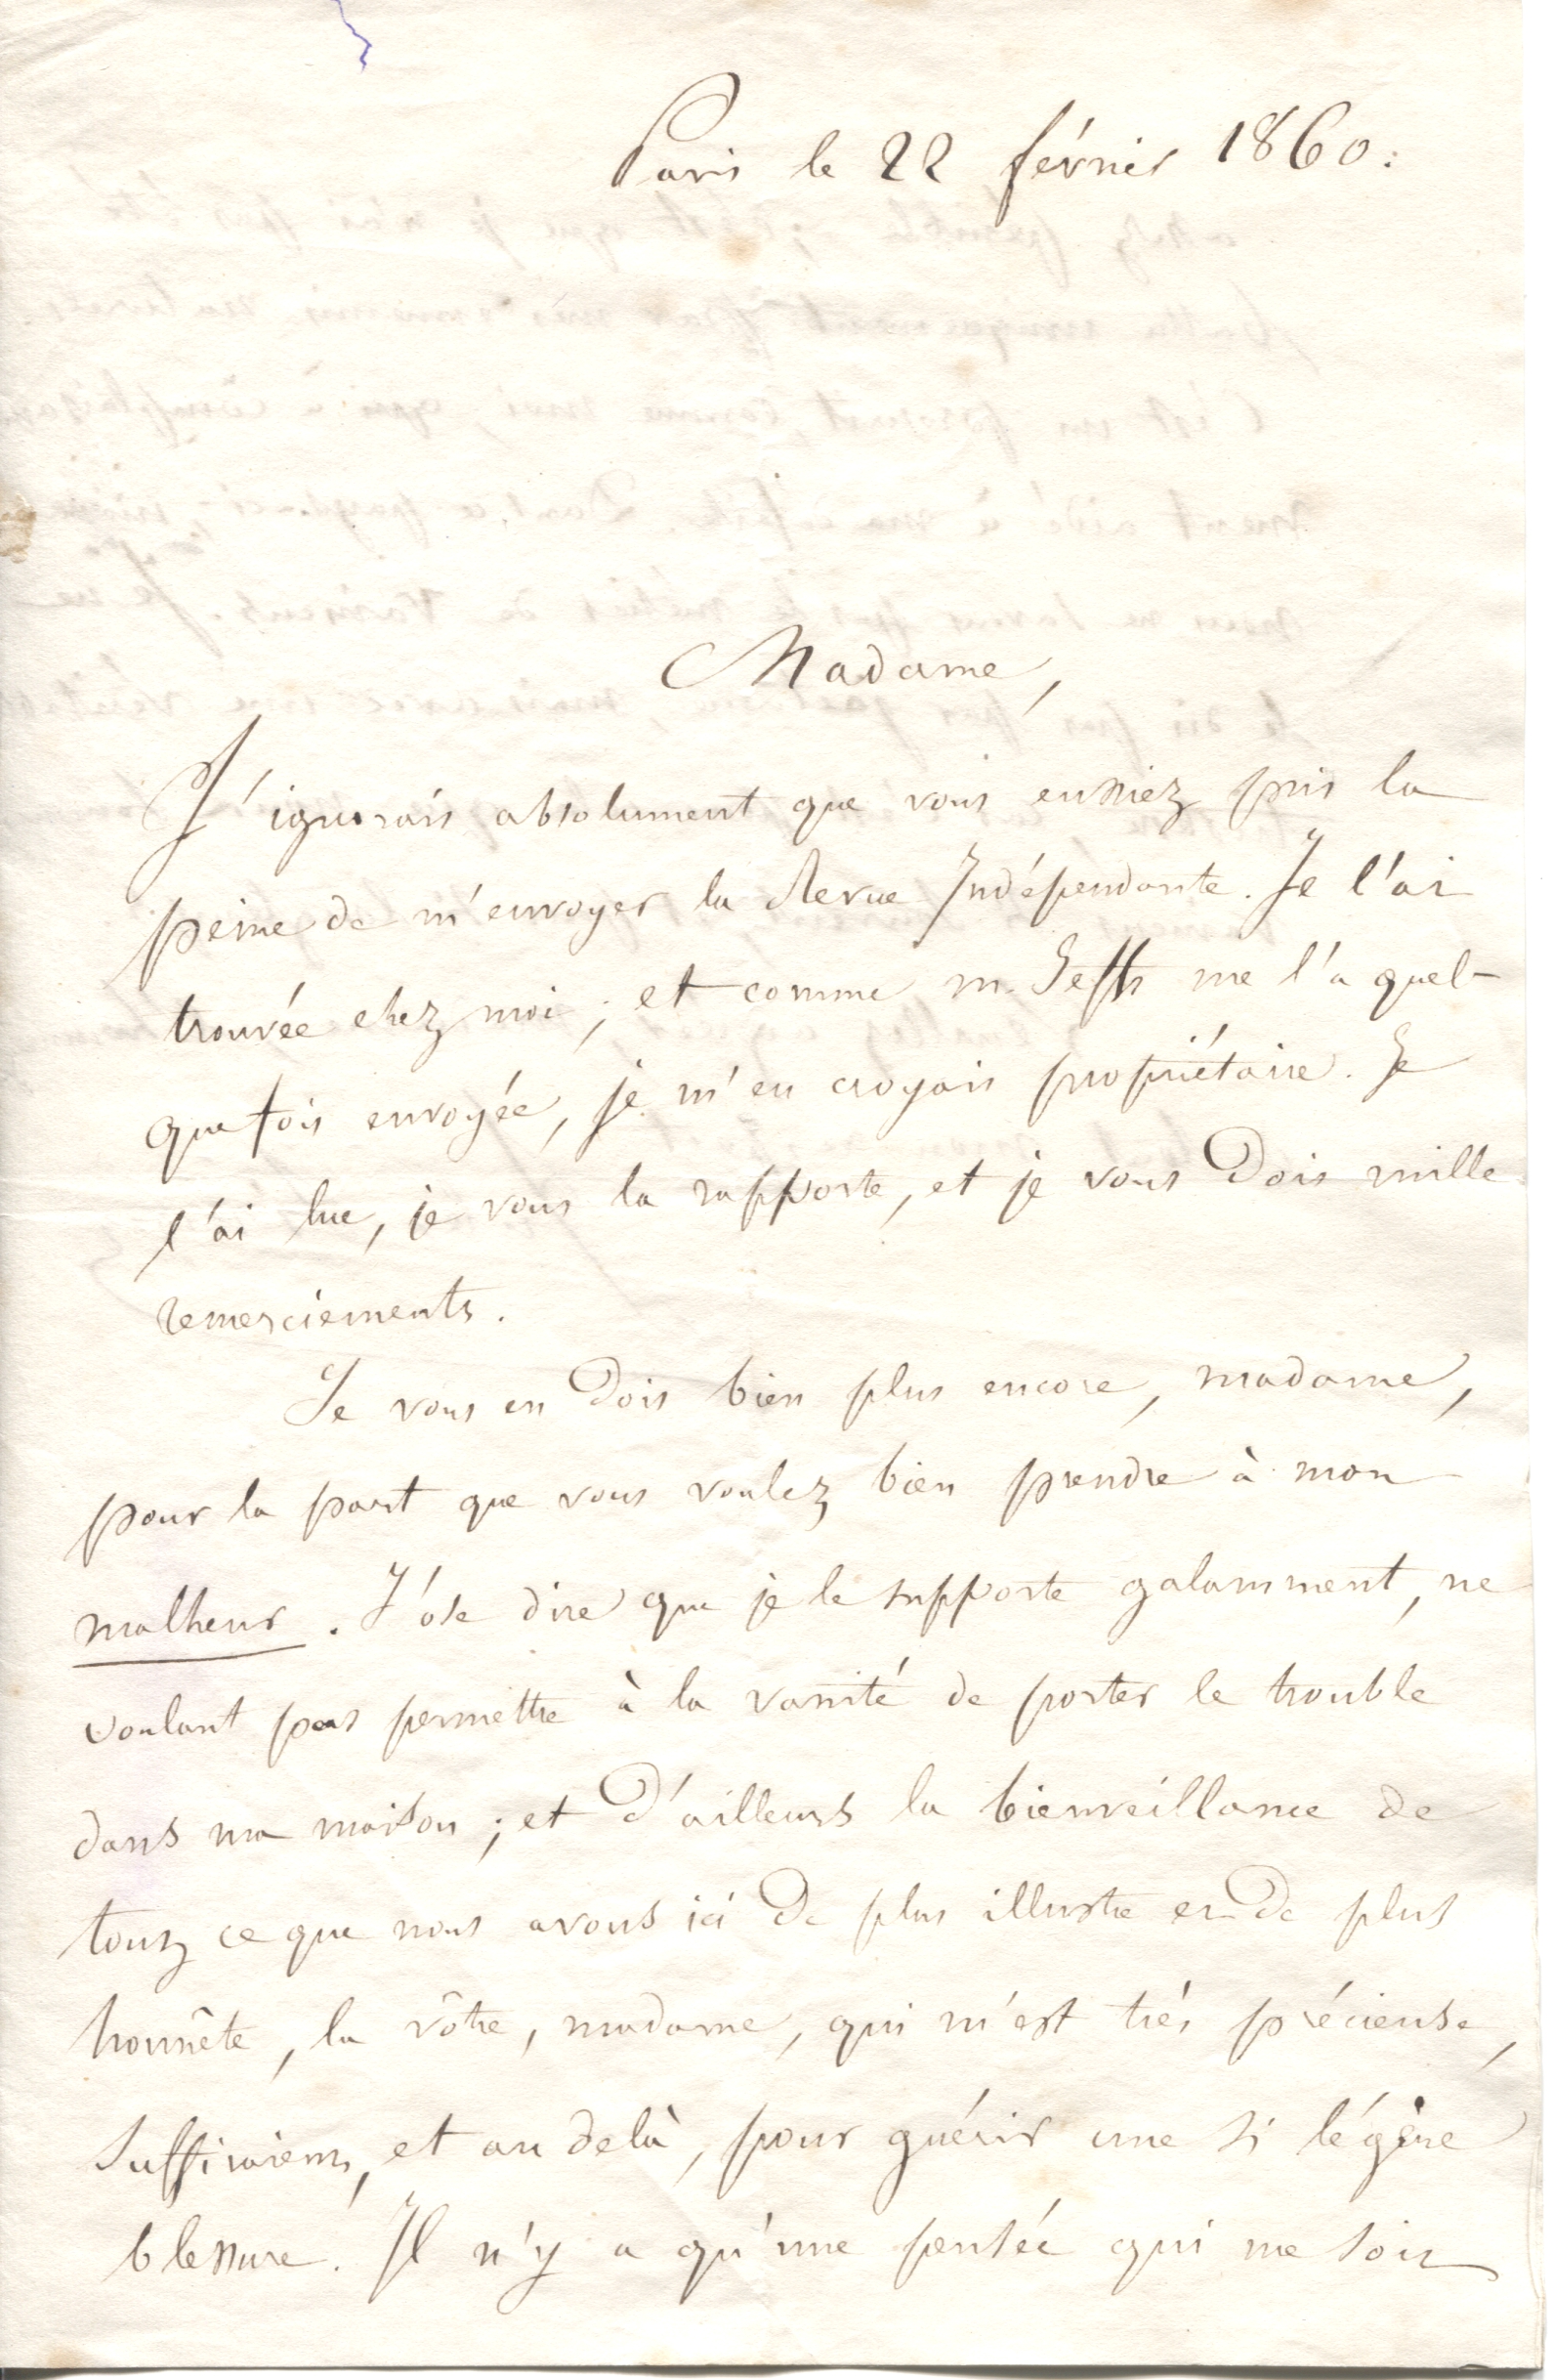 Paris le 22 février 1860.
Madame,
J'ignorais absolument que vous eussiez pris la
peine de m'envoyer la Revue Indépendante. Je l'ai
trouvée chez moi ; et comme m. me l'a quel-
quefois envoyée, je m'en croyais propriétaire. Je
l'ai lue, je vous la rapporte, et je vous dois mille
remerciements.
Je vous en dois bien plus encore, madame,
pour la part que vous voulez bien prendre à mon
malheur. J'ose dire que je le supporte galamment, ne
voulant pas permettre à la vanité de porter le trouble
dans ma maison ; et d'ailleurs la bienveillance de
tout ce que nous avons ici de plus illustre et de plus
honnête, la vôtre, madame, qui m'est très précieuse,
suffiraient, et au delà, pour guérir une si légère
blessure. Il n'y a qu'une pensée qui me soit